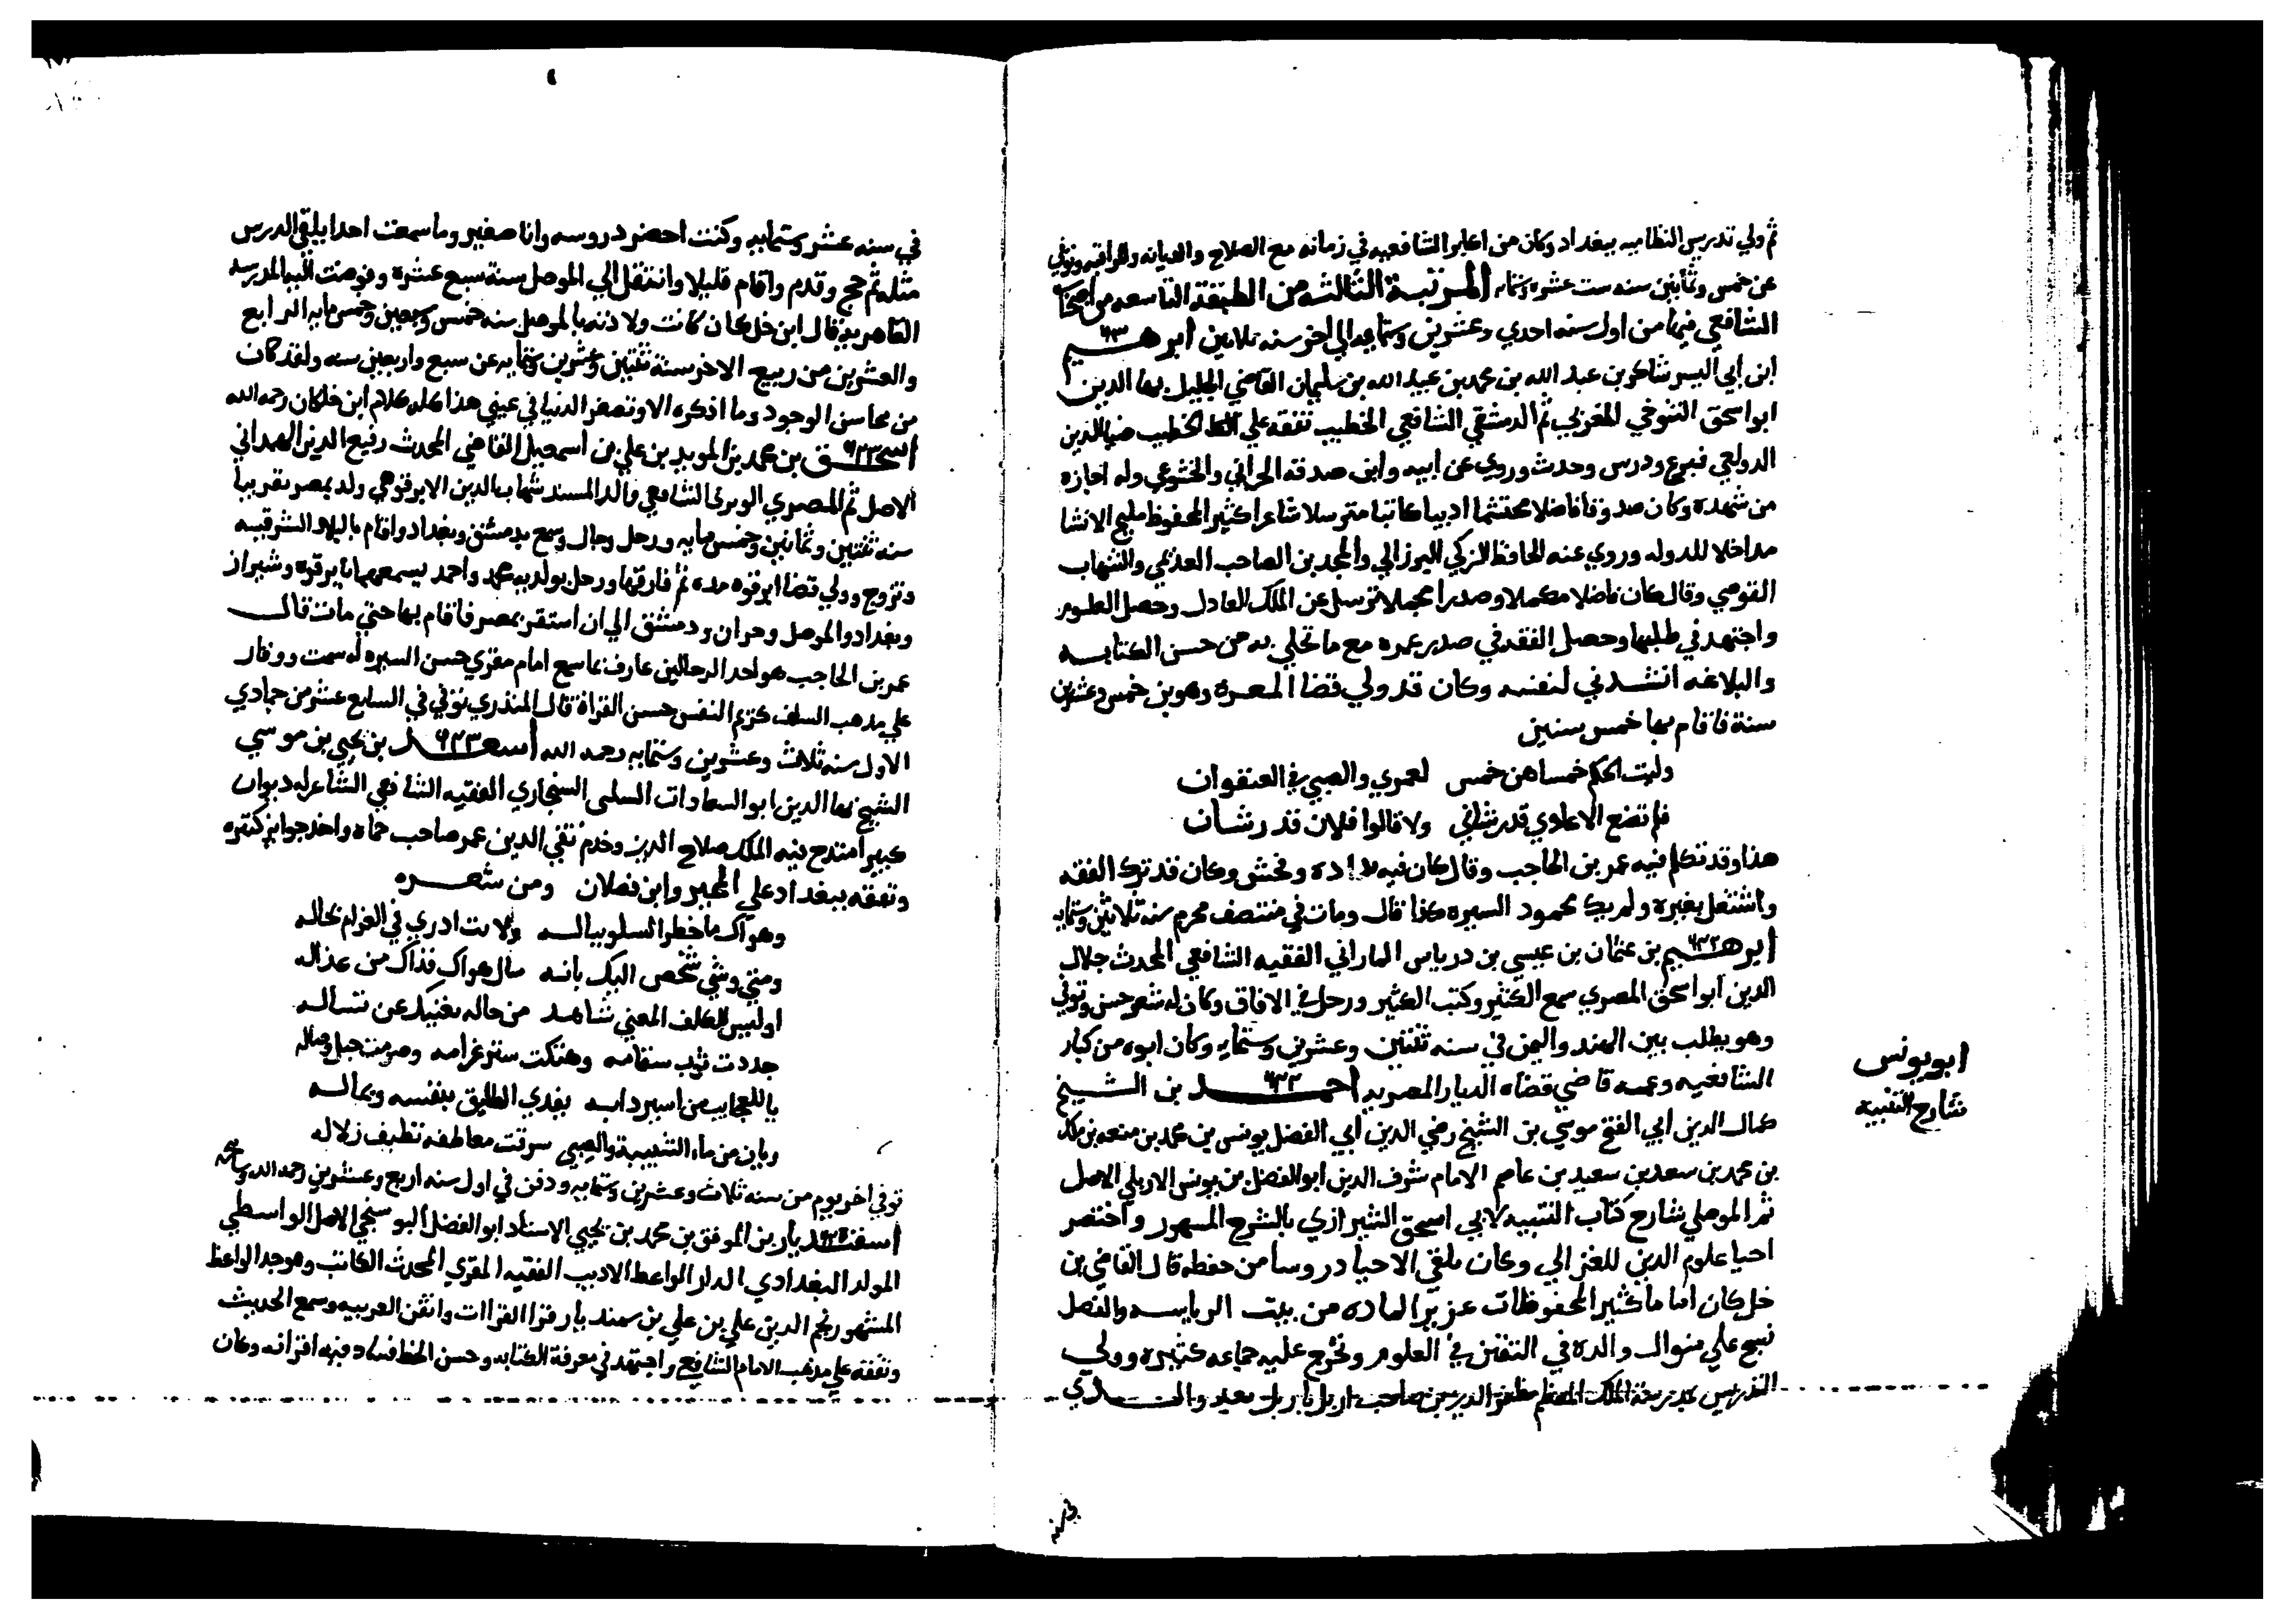 ثم ولي تدريس النظاميه ببغداد وكان من اعلام الشافعيه في زمانه مع الصلاح والديانه والمراقبه وتوفي
عن خمس وثمانين سنه ست عشره وستمايه المرتبة الثالثة من الطبقة التاسعه من اصحاب
الشافعي فيها من اول سنه احدي وعشرين وستمايه الي اخر سنه ثلاثين ابرهيم ٦٣٠
ابن ابي اليسر شاكر بن عبد الله بن محمد بن عبيد الله بن سليمان القاضي الجليل بها الدين
ابو اسحق التنوخي المعري ثم الدمشقي الشافعي الخطيب تفقه علي الخطيب ضيا الدين
الدولعي فبرع ودرس وحدث وروي عن ابيه وابن صدقه الحراني والخشوعي وله اجازه
من شهده وكان صدوقا فاضلا محتشما اديبا كاتبا مترسلا شاعرا كثير المحفوظ مليح الانشا
مداخلا للدوله وروي عنه الحافظ الزكي البرزالي والمجد بن الصاحب العديمي والشهاب
القوصي وقال كان فاضلا مكملا وصدرا مجملا ترسل عن الملك العادل وحصل العلوم
واجتهد في طلبها وحصل الفقه في صدر عمره مع ما تحلي به من حسن الكتابه
والبلاغه انشدني لنفسه وكان قد ولي قضا المعره وهو بن خمس وعشرين
سنة فاقام بها خمس سنين
وليت الحكم خمسا هن خمس لعمري والصبي في العنفوان
فلم تضع الاعادي قدر شاني ولا قالوا فلان قد رشان
هذا وقد تكلم فيه عمر بن الحاجب وقال كان فيه وفحش وكان قد ترك الفقه
واشتغل بغيره ولم يك محمود السيره هكذا قال ومات في منتصف محرم سنه ثلاثين وستمايه
ابرهيم ٦٢٢ بن عثمان بن عيسي بن درباس الماراني الفقيه الشافعي المحدث جلال
الدين ابو اسحق المصري سمع الكثير وكتب الكثير ورحل في الافاق وكان له شعر حسن وتوفي
وهو يطلب بين الهند واليمن في سنه ثنتين وعشرين وستمايه وكان ابوه من كبار
الشافعيه وعمه قاضي قضاه الديار المصريه احمد ٦٢٢ بن الشيخ
كمال الدين ابي الفتح موسي بن الشيخ رضي الدين ابي الفضل يونس بن محمد بن منعه بن ملك
بن محمد بن سعد بن سعيد بن عاصم الامام شرف الدين ابو الفضل بن يونس الاربلي الاصل
ثم الموصلي شارح كتاب التنبيه لابي اسحق الشيرازي بالشرح المشهور واختصر
احيا علوم الدين للغزالي وكان يلقي الاحيا دروسا من حفظه قال القاضي بن
خلكان اماما كثير المحفوظات عزيز الماده من بيت الرياسه والفضل
نسج علي منوال والده في التفنن في العلوم وتخرج عليه جماعه كثيره وولي
التدريس بمدرسة الملك المعظم مظفر الدين بن صاحب اربل باربل بعيد والده
ابو يونس
شارح التنبيه
في سنه عشر وستمايه وكنت احضر دروسه وانا صغير وما سمعت احدا يلقي الدرس
مثله ثم حج وقدم واقام قليلا وانتقل الي الموصل سنة سبع عشره وفوضت اليه المدرسه
القاهريه قال ابن خلكان كانت ولادته بالموصل سنه خمس وسبعين وخمس مايه الرابع
والعشرين من ربيع الاخر سنة ثنتين وعشرين وستمايه عن سبع واربعين سنه ولقد كان
من محاسن الوجود وما اذكره الا وتصغر الدنيا في عيني هذا كله كلام ابن خلكان رحمه الله
اسحق ٦٢٣ بن محمد بن المويد بن علي بن اسمعيل القاضي المحدث رفيع الدين الهمداني
الاصل ثم المصري الوبري الشافعي والد المسند شهاب الدين الابرقوهي ولد بمصر تقريبا
سنه ثنتين وثمانين وخمس مايه ورحل وجال وسمع بدمشق وبغداد واقام بالبلاد الشرقيه
وتزوج وولي قضا ابرقوه مده ثم فارقها ورحل بولديه محمد واحمد يسمعهما بابرقوه وشيراز
وبغداد والموصل وحران ودمشق الي ان استقر بمصر فاقام بها حتي مات قال
عمر بن الحاجب هو احد الرحالين عارف بما سمع امام مقري حسن السيره له سمت ووقار
علي مذهب السلف كريم النفس حسن القراة قال المنذري توفي في السابع عشر من جمادي
الاول سنه ثلاث وعشرين وستمايه رحمه الله اسعد ٦٢٣ بن يحيي بن موسي
الشيخ بها الدين ابو السعادات السلمي السنجاري الفقيه الشافعي الشاعر له ديوان
كبير امتدح فيه الملك صلاح الدين وخدم تقي الدين عمر صاحب حماه واخذ جوايز كثيره
وتفقه ببغداد علي المجير وابن فضلان ومن شعره
وهواك ما خطر السلو بباله ولانت ادري في الغرام بحاله
ومتي وشي شخص اليك بانه سال هواك فذاك من عذاله
اوليس للكلف المعني شاهد من حاله يغنيك عن تساله
جددت ثوب سقامه وهتكت ستر غرامه وصرمت حبل وصاله
يا للعجايب من اسير دابه يفدي الطليق بنفسه وبماله
ريان من ماء الشبيبة والصبي سرقت معاطفه تطيف زلاله
توفي اخر يوم من سنه ثلاث وعشرين وستمايه ودفن في اول سنه اربع وعشرين رحمه الله
اسفنديار بن الموفق بن محمد بن يحيي الاستاد ابو الفضل البوسنجي الاصل الواسطي
المولد البغدادي الدار الواعظ الاديب الفقيه المقري المحدث الكاتب وهو جد الواعظ
المشهور نجم الدين علي بن علي بن سفنديار قرا القراات واتقن العربيه وسمع الحديث
وتفقه علي مذهب الامام الشافعي واجتهد في معرفة الكتابه وحسن الخط فساد فيه اقرانه وكان